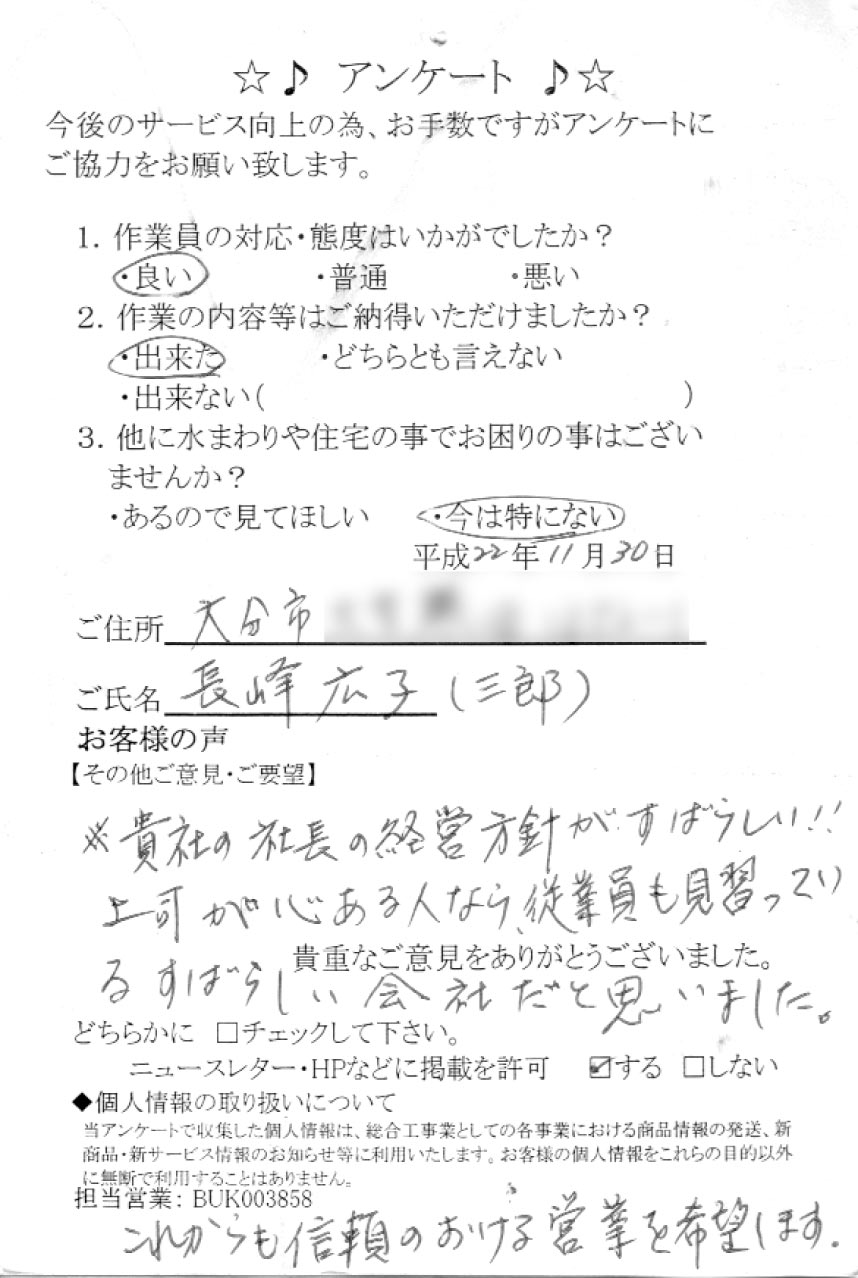 ☆♪ アンケート ♪☆
今後のサービス向上の為、お手数ですがアンケートに
ご協力をお願い致します。
1. 作業員の対応・態度はいかがでしたか？
・良い ・普通 ・悪い
2. 作業の内容等はご納得いただけましたか？
・出来た ・どちらとも言えない
・出来ない( )
3. 他に水まわりや住宅の事でお困りの事はござい
ませんか？
・あるので見てほしい ・今は特にない
平成22年11月30日
ご住所 大分市
ご氏名 長峰 広子 (三郎)
お客様の声
【その他ご意見・ご要望】
※貴社の社長の経営方針がすばらしい!!
上司が心ある人なら、従業員も見習ってい
貴重なご意見をありがとうございました。
るすばらしい会社だと思いました。
どちらかに □チェックして下さい。
ニュースレター・HPなどに掲載を許可 ☑する □しない
◆個人情報の取り扱いについて
当アンケートで収集した個人情報は、総合工事業としての各事業における商品情報の発送、新
商品・新サービス情報のお知らせ等に利用いたします。お客様の個人情報をこれらの目的以外
に無断で利用することはありません。
担当営業: BUK003858
これからも信頼のおける営業を希望します.